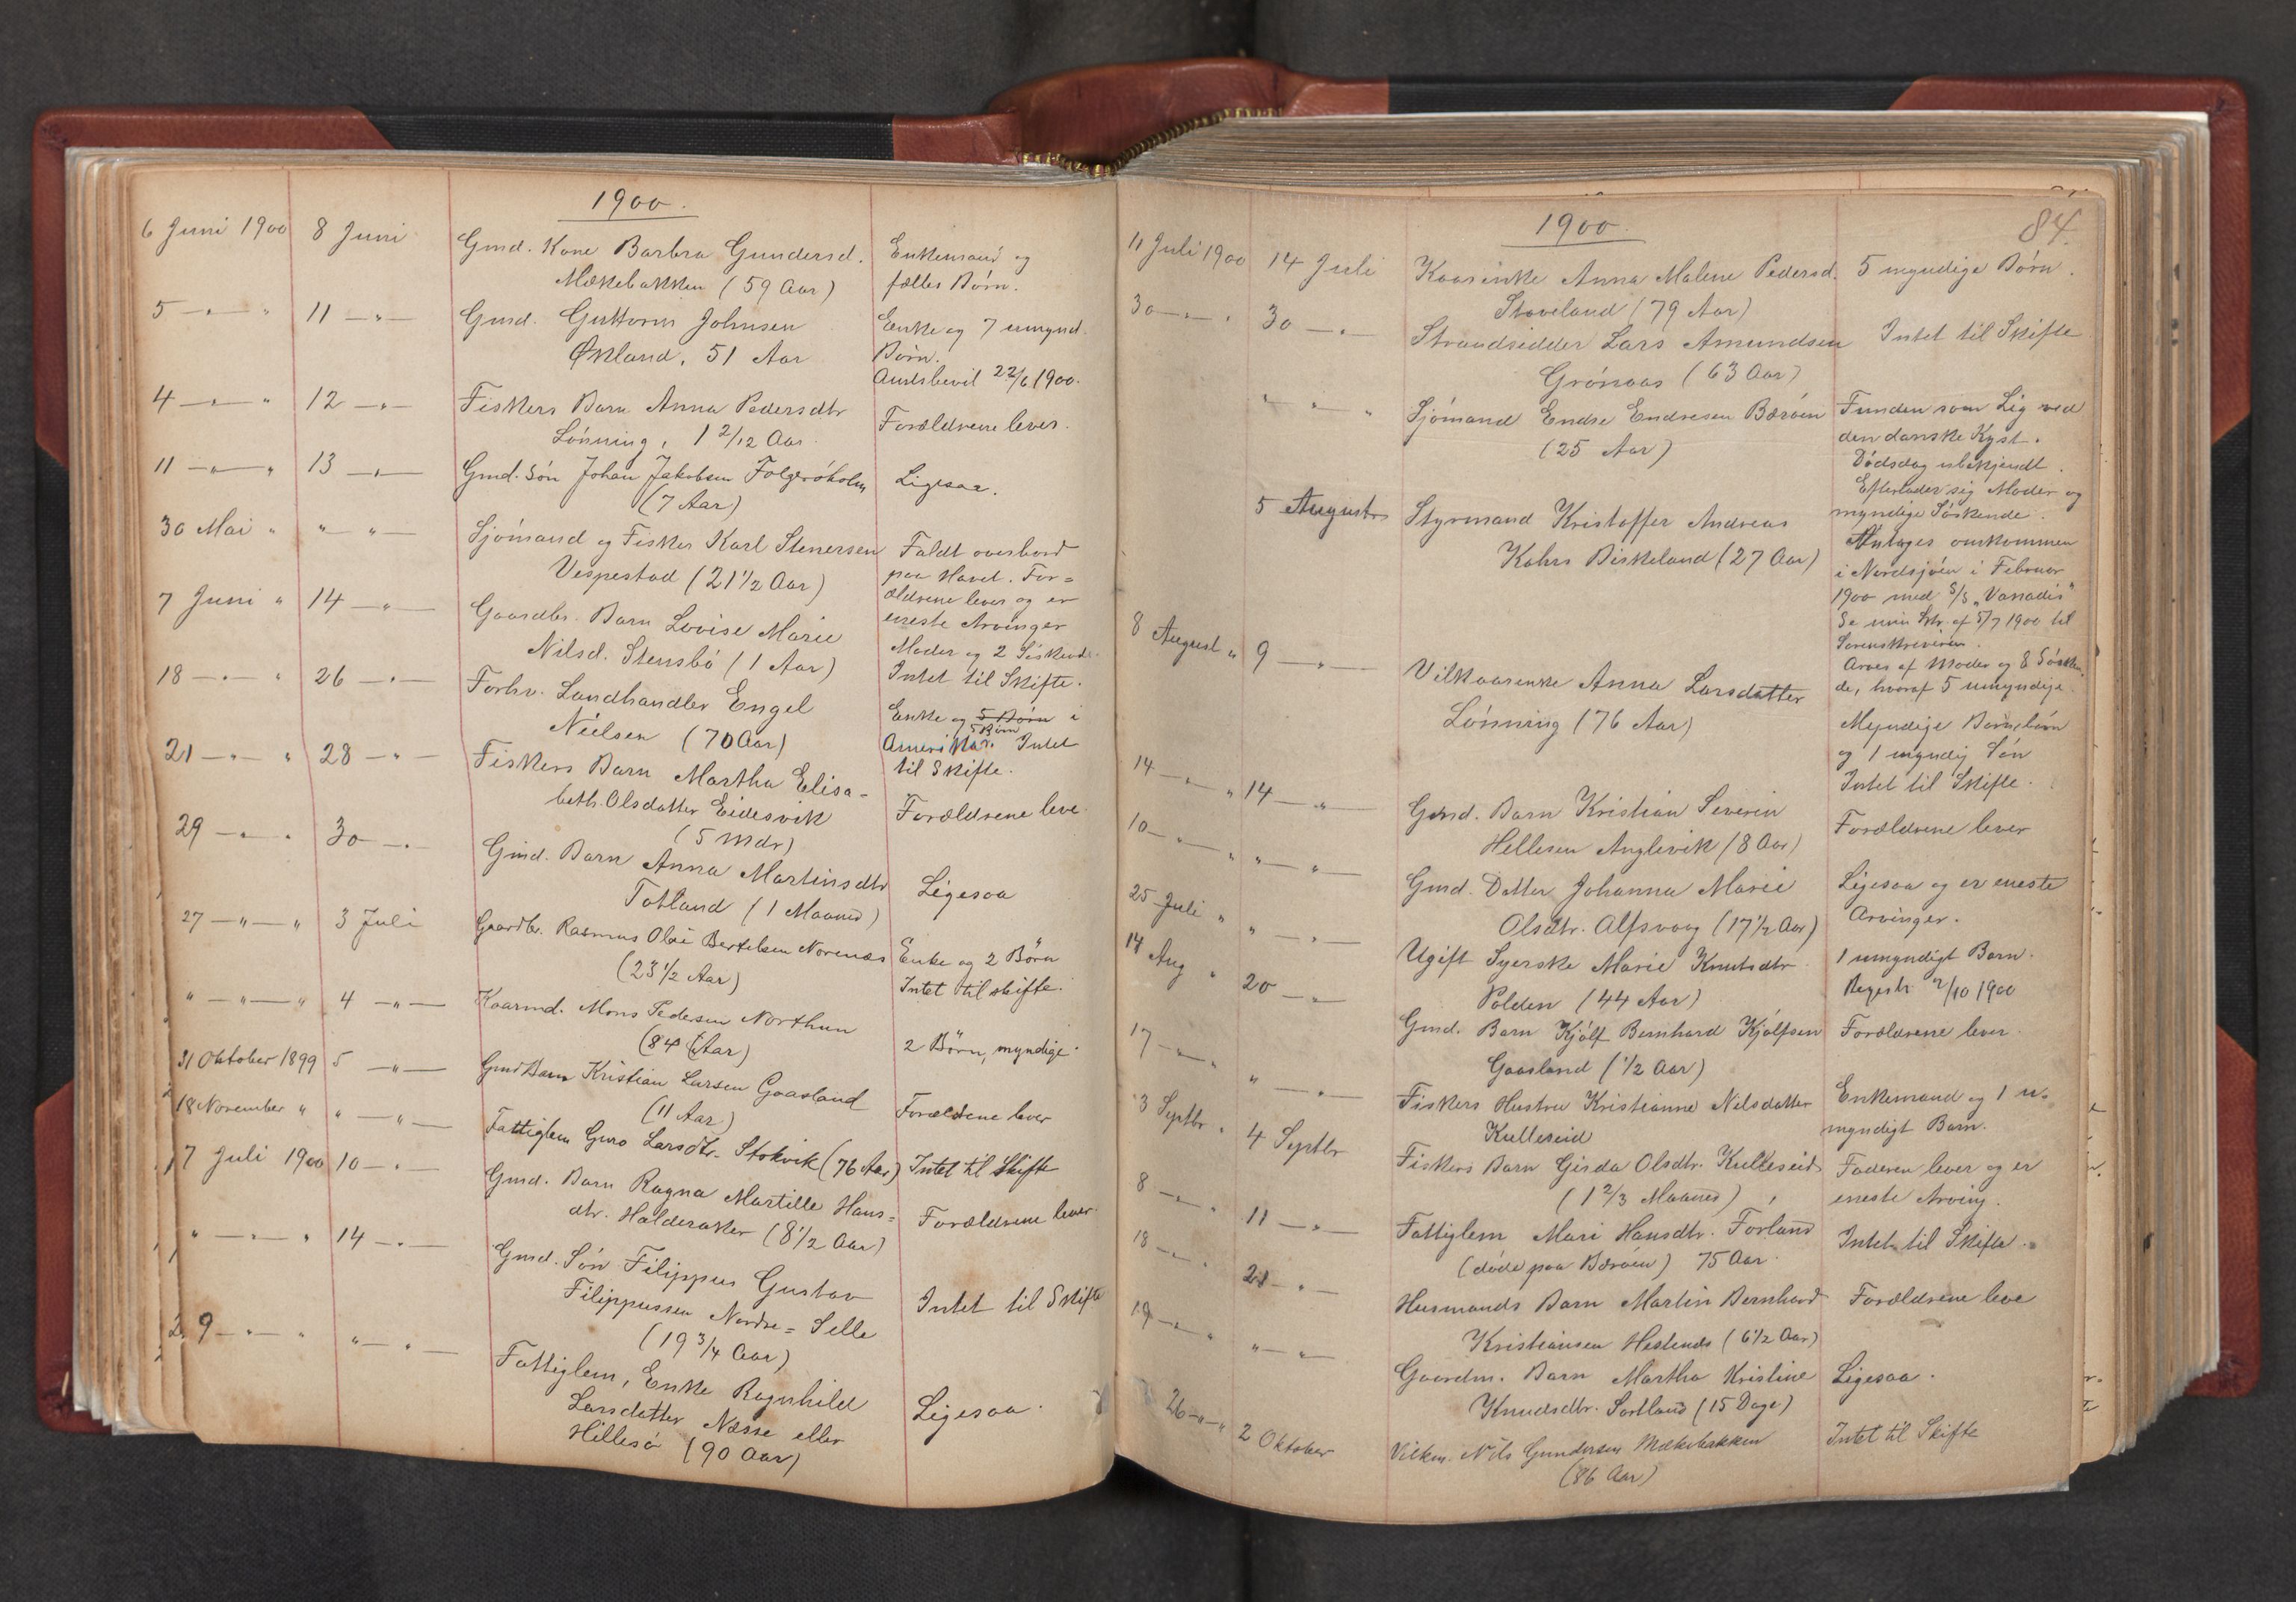 1900.
6 Juni 1900 8 Juni Gmd. Kone Barbra Gundersd. Enkemand og
Mækebakken (59 Aar) fælles Børn.
5 — " — " 11 — " — Gmd. Guttorm Johnsen Enke og 7 umynd.
Økland, 51 Aar Børn.
Amtsbevil 22/6 1900.
4 — " — " 12 — " — Fiskers Barn Anna Pedersdtr Forældrene lever.
Lønning, 1 2/12 Aar.
11 — " — " 13 — " — Gmd. Søn Johan Jakobsen Folgerøholm Ligesaa.
(7 Aar)
30 Mai " " — " — Sjømand og Fisker Karl Stenersen Faldt overbord
Vespestad (21 1/2 Aar) paa Havet. For=
ældrene lever og er
eneste Arvinger
7 Juni " 14 — " — Gaardbr. Barn Lovise Marie Moder og 2 Søskende.
Nilsd. Stensbø (1 Aar) Intet til Skifte.
18 — " — " 26 — " — Forhv. Landhandler Engel Enke og 5 Børn i
Nielsen (70 Aar) 5 Børn
Amerika. Intet
til Skifte.
21 — " — " 28 — " — Fiskers Barn Martha Elisa=
beth Olsdatter Eidesvik Forældrene leve.
(5 Mdr)
29 — " — " 30 — " Gmd. Barn Anna Martinsdtr Ligesaa
Totland (1 Maaned)
27 — " — " 3 Juli Gaardbr. Rasmus Olai Bertelsen Norenæs Enke og 2 Børn
(23 1/2 Aar) Intet til skifte.
" — " — " 4 — " — Kaarmd. Mons Pedersen Northun
(84 Aar) 2 Børn, myndige.
31 Oktober 1899 5 — " — Gmd Barn Kristian Larsen Gaasland
(11 Aar) Forældrene lever
18 November " " — " — Fattiglem Guro Larsdtr. Stokvik (76 Aar) Intet til Skifte
7 Juli 1900 10 — " — Gmd. Barn Ragna Martille Hans=
dtr. Halderaker (8 1/2 Aar) Forældrene lever.
" — " — " 14 — " — Gmd. Søn Filippus Gustav
Filippussen Nordre=Selle Intet til Skifte
(19 3/4 Aar)
9 — " — " " — " — Fattiglem, Enke Ragnhild
Larsdatter Næsse eller Ligesaa.
Hillesø (90 Aar)
1900.
84.
11 Juli 1900 14 Juli Kaarenke Anna Malene Pedersd. 5 myndige Børn.
Stoveland (79 Aar)
30 — " — " 30 — " — Strandsidder Lars Amundsen Intet til Skifte
Grønaas (63 Aar)
" " " Sjømand Endre Endresen Bærøen Funden som Lig ved
(25 Aar) den danske Kyst.
Dødsdag ubekjendt.
Efterlader sig Moder og
myndige Søskende.
5 August Styrmand Kristoffer Andreas Antages omkommen
Kahrs Biskeland (27 Aar) i Nordsjøen i Februar
1900 med S/S „Vanadis“
Se min Skr. af 5/7 1900 til
Sorenskriveren.
Arves af Moder og 8 Søsken
de, hvoraf 5 umyndige.
8 August " 9 — " — Vilkaarenke Anna Larsdatter
Lønning (76 Aar) Myndige Barnebørn
og 1 myndig Søn
Intet til Skifte.
14 — " — " 14 — " — Gmd. Barn Kristian Severin Forældrene lever
Hellesen Anglevik (8 Aar)
10 — " — " " — " — Gmd. Datter Johanna Marie Ligesaa og er eneste
Olsdtr. Alfsvaag (17 1/2 Aar) Arvinger.
25 Juli " " — " — Ugift Syerske Marie Knutsdtr 1 umyndigt Barn.
Polden (44 Aar) Regestr. 2/10 1900
14 Aug " 20 — " — Gmd. Barn Kjølf Bernhard Kjølfsen Forældrene lever.
Gaasland (1/2 Aar)
17 — " — " " — " — Fiskers Hustru Kristianne Nilsdatter Enkemand og 1 u=
Kulleseid myndigt Barn.
3 Septbr " 4 Septbr Fiskers Barn Girda Olsdtr. Kulleseid Faderen lever og er
(1 2/3 Maaned) eneste Arving.
8 — " — " 11 — " — Fattiglem Mari Hansdtr. Forland Intet til Skifte.
(døde paa Bærøen) 75 Aar.
18 — " — " 21 — " — Husmands Barn Martin Bernhard Forældrene leve
Kristiansen Hestenes (6 1/2 Aar)
19 — " — " " — " — Gaardm. Barn Martha Kristine Ligesaa.
Knudsdtr. Sortland (15 Dage)
26 — " — " 2 Oktober Vilkm. Nils Gundersen Mækebakken Intet til Skifte
(86 Aar)